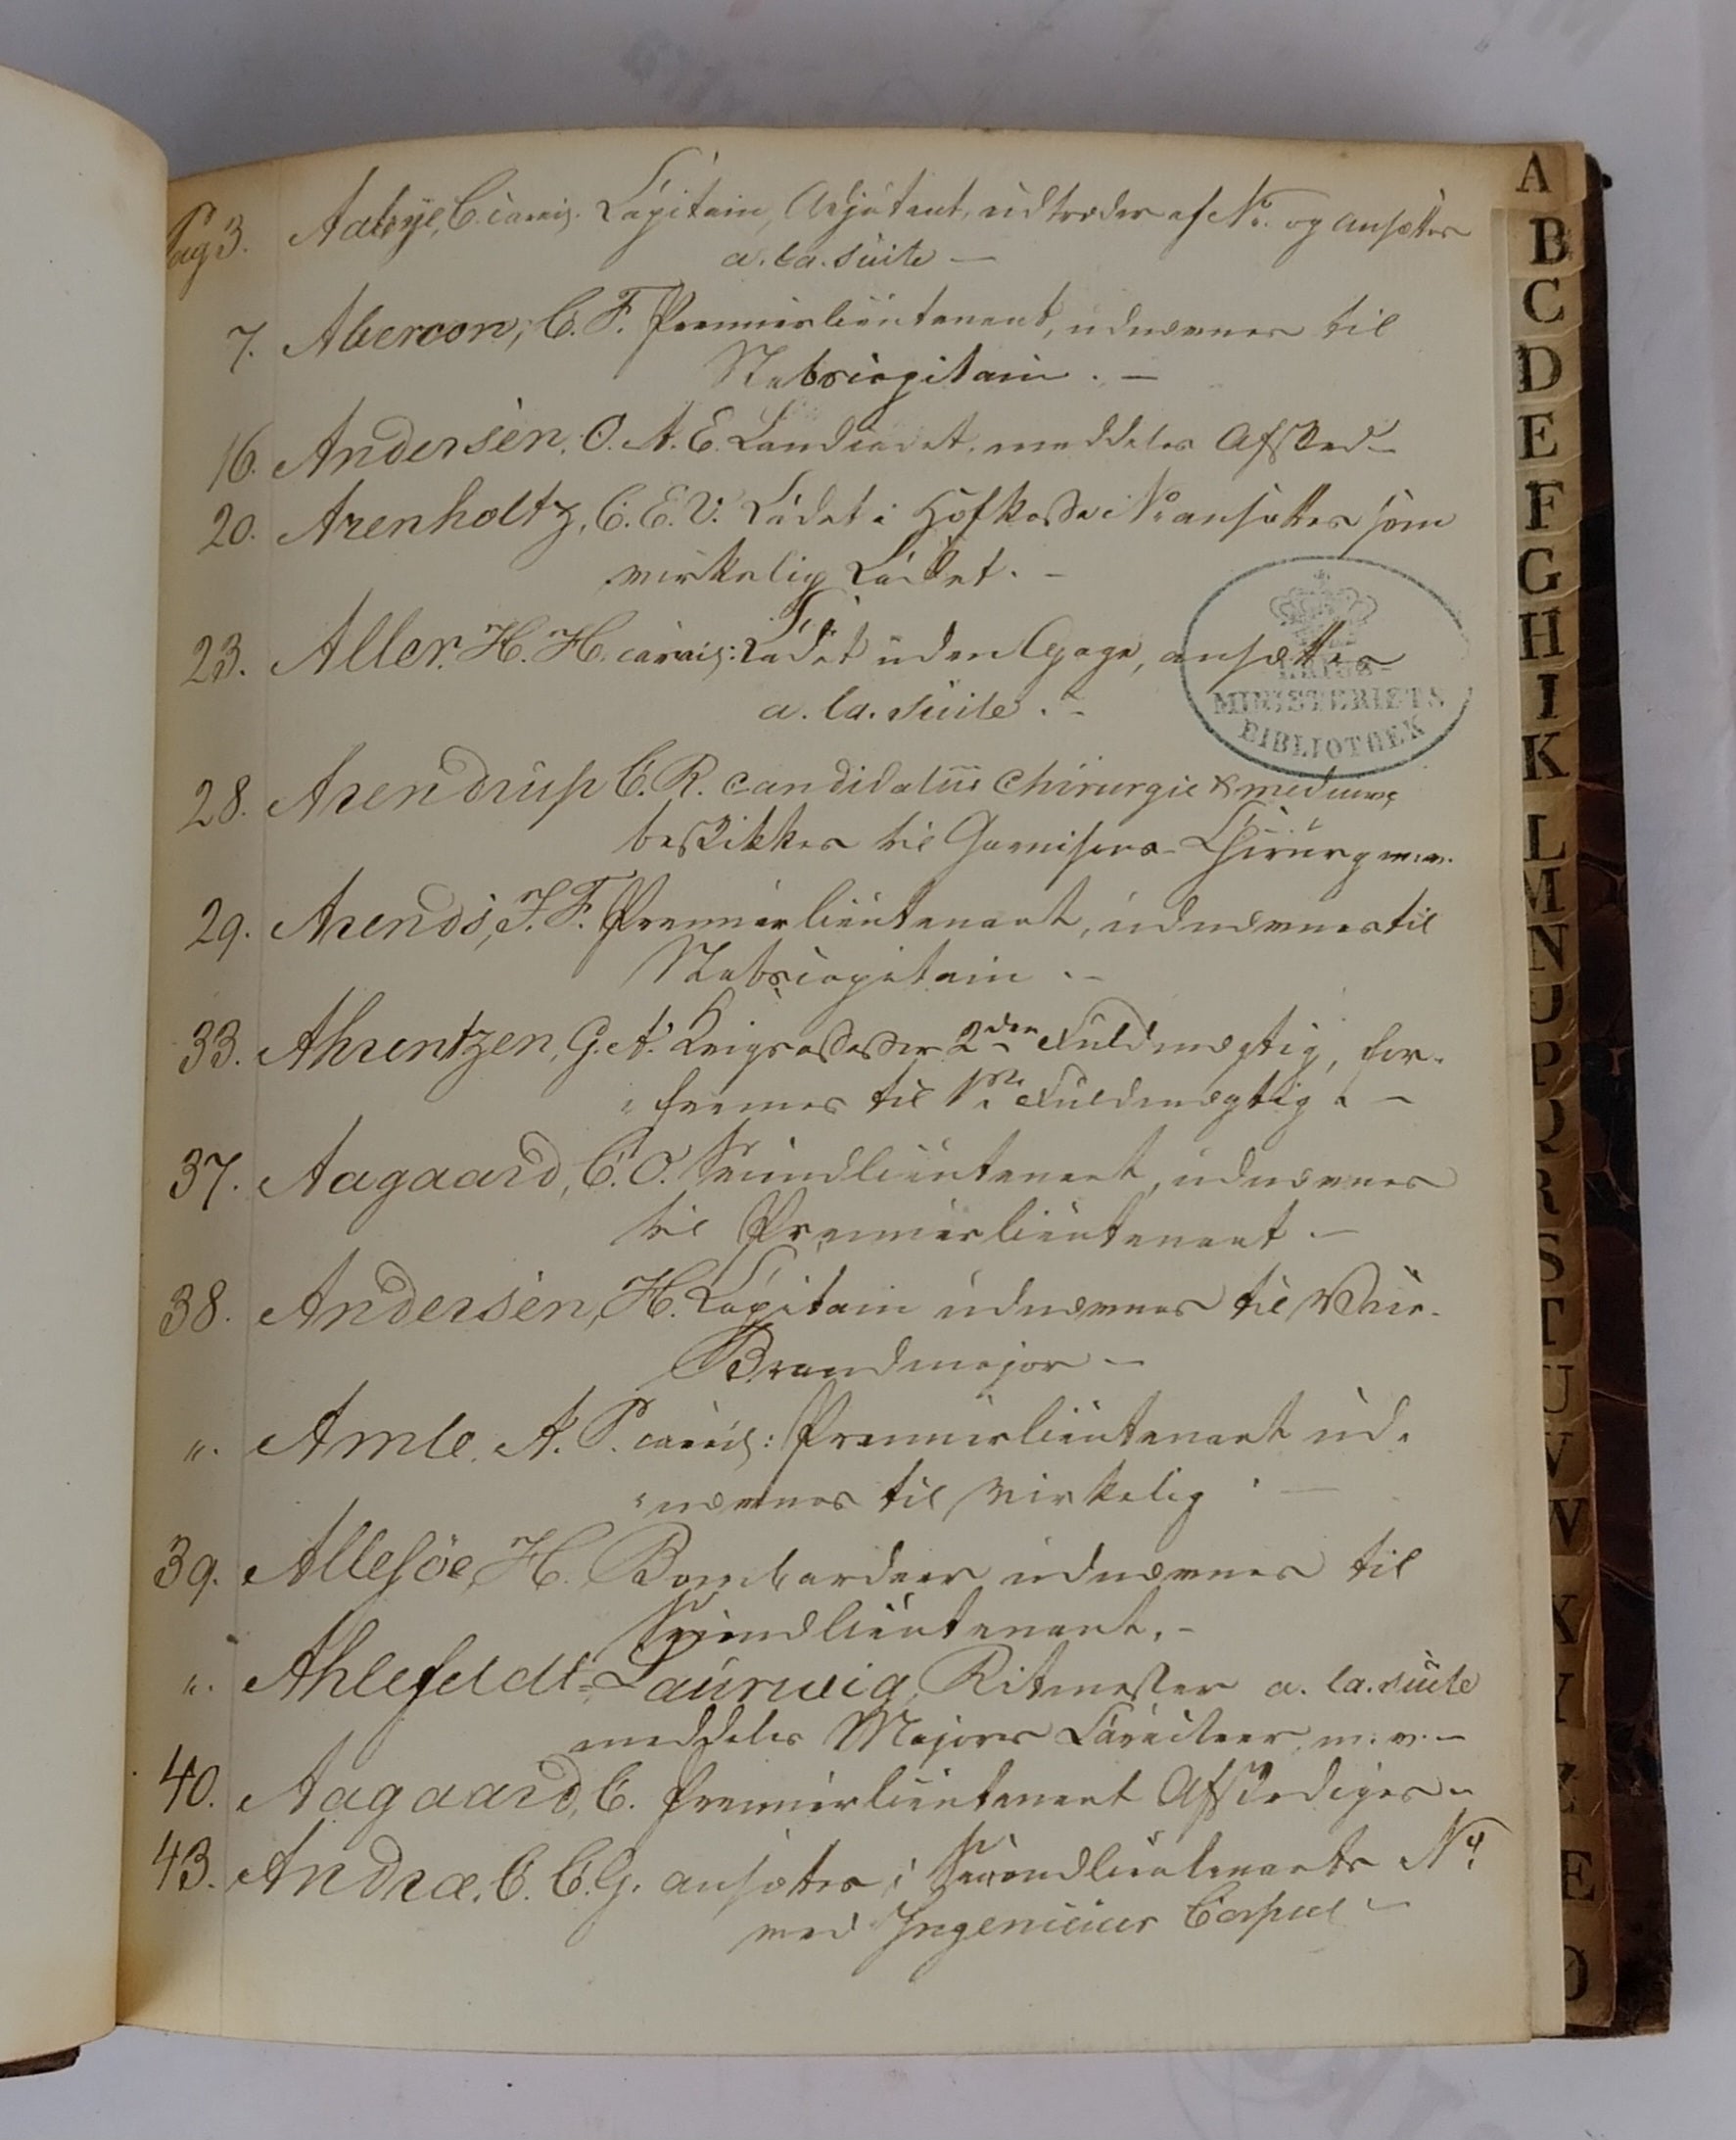 Pag 3. Aabye, C. carac. Capitain, Adjutant, udtræder af No. og ansættes
a. la. suite —
7. Abercon, C. F. Premierlieutenant, udnævnes til
Stabscapitain. —
16. Andersen, O. A. E. Landcadet, meddeles Afsked —
20. Arenholtz, C. E. V. Cadet i Hofkasse No ansættes som
virkelig Cadet. —
23. Aller, H. H. carac: Cadet uden Gage, ansættes
a. la. suite. —
28. Arendrup C. R. candidatus chirurgie & medicine
beskikkes til Garnisons-Chirurg m.v.
29. Arends, J. F. Premierlieutenant, udnævnes til
Stabscapitain. —
33. Ahrentzen, G. A. Krigsassessor 2den Fuldmægtig, for-
fremmes til 1ste Fuldmægtig. —
37. Aagaard, C. O. Secondlieutenant, udnævnes
til Premierlieutenant. —
38. Andersen, H. Capitain udnævnes til Vice-
Brandmajor —
". Amle, A. P. carac: Premierlieutenant ud-
nævnes til virkelig —
39. Allesøe, H. Bombardeer udnævnes til
Secondlieutenant. —
". Ahlefeldt-Laurwig, Ritmester a. la. suite
meddeles Majors Caracteer, m. v. —
40. Aagaard, C. Premierlieutenant Afskediges —
43. Andræ, C. C. G. ansættes i Secondlieutenants No.
ved Ingenieur Corpset —
MINISTERIETS
BIBLIOTHEK
A
B
C
D
E
F
G
H
I
K
L
M
N
O
P
Q
R
S
T
U
V
W
X
Y
Z
Æ
Ø